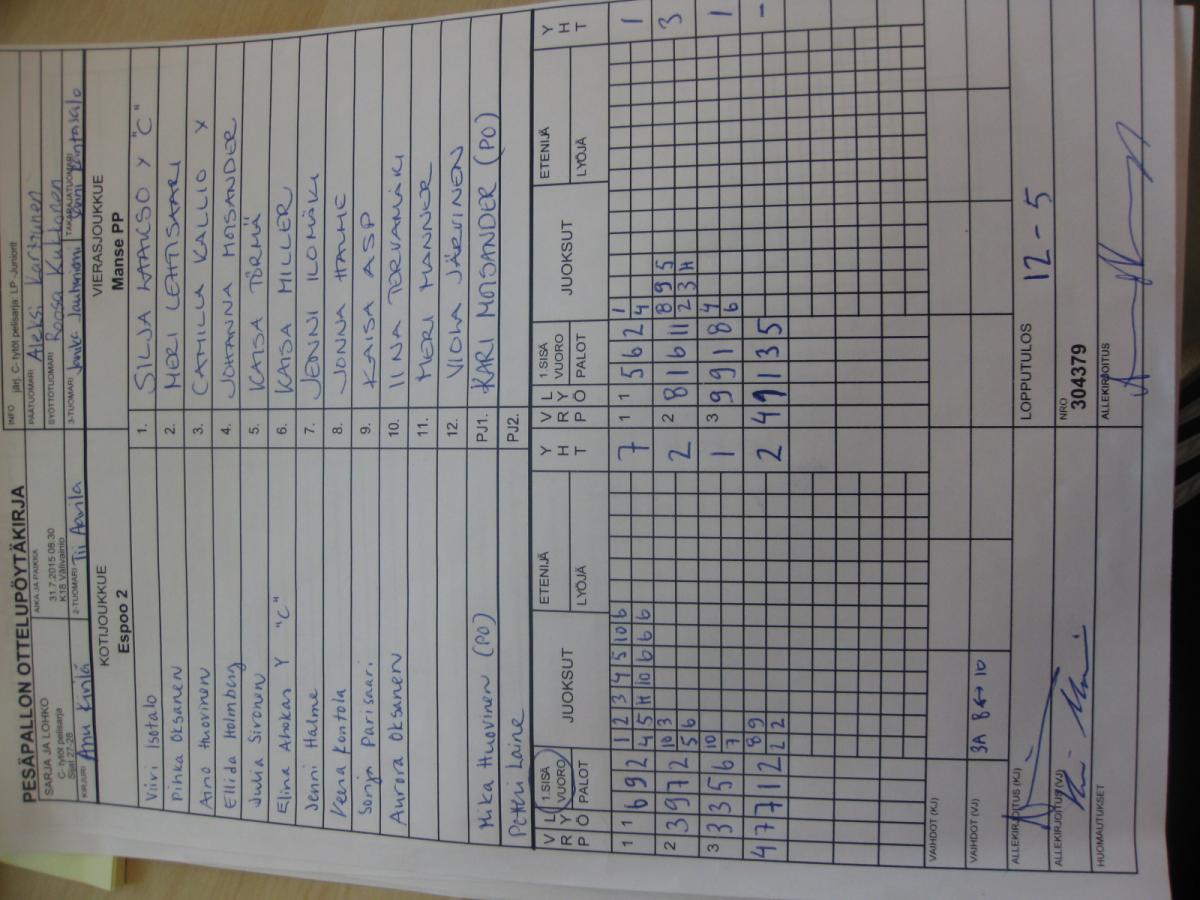 PESÄPALLON OTTELUPÖYTÄKIRJA
SARJA JA LOHKO
C- tytöt pelisarja
Sijat 27-28
AIKA JA PAIKKA
31.7.2015 08:30
K18 Välivainio
INFO järj. C- tytöt pelisarja: LP -Juniorit
PÄÄTUOMARI Aleksi Karttunen
SYÖTTÖTUOMARI Roosa Kukkonen
KIRJURI Anu Kinla
2-TUOMARI Tii Aavila
3-TUOMARI
TAKARAJATUOMARI
KOTIJOUKKUE
Espoo 2
VIERASJOUKKUE
Manse PP
Viivi Isotalo 1. SILJA LAAKSO Y "C"
Pihka Oksanen 2. MERI LEHTISAARI
Aino Huovinen 3. CAMILLA KALLIO X
Ellida Holmberg 4. JOHANNA MOISANDER
Julia Sironen 5. KAISA TÖRMÄ
Elina Ahokas Y "C" 6. KAISA MILLER
Jenni Halme 7. JENNI ILOMÄKI
Veena Kontola 8. JONNA HALME
Sonja Parisaari 9. KAISA ASP
Aurora Oksanen 10. IINA TORVAMÄKI
11. MERI MANNER
12. VIOLA JÄRVINEN
Mika Huovinen (PO) PJ1. KARI MOISANDER (PO)
Petteri Laine PJ2.
V R P L Y Ö 1.SISÄ VUORO PALOT JUOKSUT ETENIJÄ LYÖJÄ Y H T V R P L Y Ö 1.SISÄ VUORO PALOT JUOKSUT ETENIJÄ LYÖJÄ Y H T
1 1 6 9 2 1 2 3 4 5 10 6 7 1 1 5 6 2 1 1
4 5 H 10 6 6 6 4
2 3 9 7 2 10 3 2 2 8 1 6 11 8 9 5 3
5 6 2 3 H
3 3 3 5 6 10 1 3 9 9 1 8 4 1
7 6
4 7 7 1 2 8 9 2 4 9 1 3 5 -
2 2
VAIHDOT (KJ)
VAIHDOT (VJ) 3A 8↔10
ALLEKIRJOITUS (KJ)
LOPPUTULOS 12 - 5
ALLEKIRJOITUS (VJ)
NRO
304379
HUOMAUTUKSET
ALLEKIRJOITUS